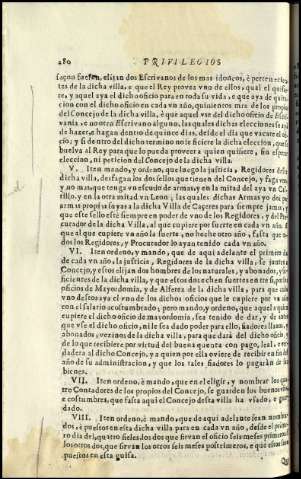 280 PRIVILEGIOS
façon fuessen, elijan dos Escrivanos de los mas idoneos, è pertenecien-
tes de la dicha villa, e que el Rey provea vno de ellos, qual el quisie-
re, y aquel aya el dicho oficio para en toda su vida, e que aya de quita-
cion con el dicho oficio en cada vn año, quinientos mrs de los propios
del Concejo de la dicha villa, è que aquel vse del dicho oficio de Escri-
vania, e no otro Escrivano alguno, las quales dichas elecciones se ayan
de hazer, e hagan dentro de quince dias, desde el dia que vacare el ofi-
cio; y si dentro del dicho termino no se fiziere la dicha eleccion, que se
buelva al Rey para que lo pueda proveer a quien quisiere, sin esperar
eleccion, ni peticion del Concejo de la dicha villa.
V. Iten mando, y ordeno, que luego la justicia, Regidores de la
dicha villa, desfagan los dos sellos que tienen del Concejo, y fagan vno
y no mas, que tenga vn escudo de armas, y en la mitad del aya vn Cas-
tillo, y en la otra mitad vn Leon; las quales dichas Armas yo doy por
armas propias a la dicha Villa de Caçeres para siempre jamas, y
que este sello esté siempre en poder de vno de los Regidores, y del Pro-
curador de la dicha Villa, al que cupiere por suerte en cada vn año. E
que al que cupiere vn año la suerte, no heche otro año, fasta que to-
dos los Regidores, y Procurador lo ayan tenido cada vn año.
VI. Iten ordeno, y mando, que de aqui adelante el primero dia
de cada vn año, la justicia, Regidores de la dicha villa, se junten a
Concejo, y estos elijan dos hombres de los naturales, y abonados, y su-
ficientes de la dicha villa, y que estos dos echen suertes entre si, por los
oficios de Mayordomia, y de Alferez de la dicha villa, para que cada
vno destos aya el vno de los dichos oficios que le cupiere por vn año
con el salario acostumbrado, pero mando, y ordeno, que aquel a quien
cupiere el dicho oficio de mayordomia, sea tenido de dar, y de antes
que vse el dicho oficio, ni le sea dado poder para ello, sus fiadores llanos, y
abonados, vezinos de la dicha villa, para que dará del dicho oficio,
de lo que recibiere por virtud de buena quenta con pago, leal, y ver-
dadera al dicho Concejo, ya quien por ella oviere de recibir en fin del
año de su administracion, y que los tales fiadores lo pagarán de sus
bienes.
VII. Iten ordeno, è mando, que en el elegir, y nombrar los qua-
tro Contadores de los propios del Concejo, se guarden los buenos vsos,
e costumbres, que fasta aqui el Concejo desta villa ha vsado, e guar-
dado.
VIII. Iten ordeno, è mando, que de aqui adelante sean nombra-
dos, è puestos en esta dicha villa para en cada vn año, desde el prime-
ro dia del, quatro fieles, los dos que sirvan el oficio seis meses primeros, e
los otros dos, que sirvan los otros seis meses postrimeros, e que estos sean
puestos en esta guisa.